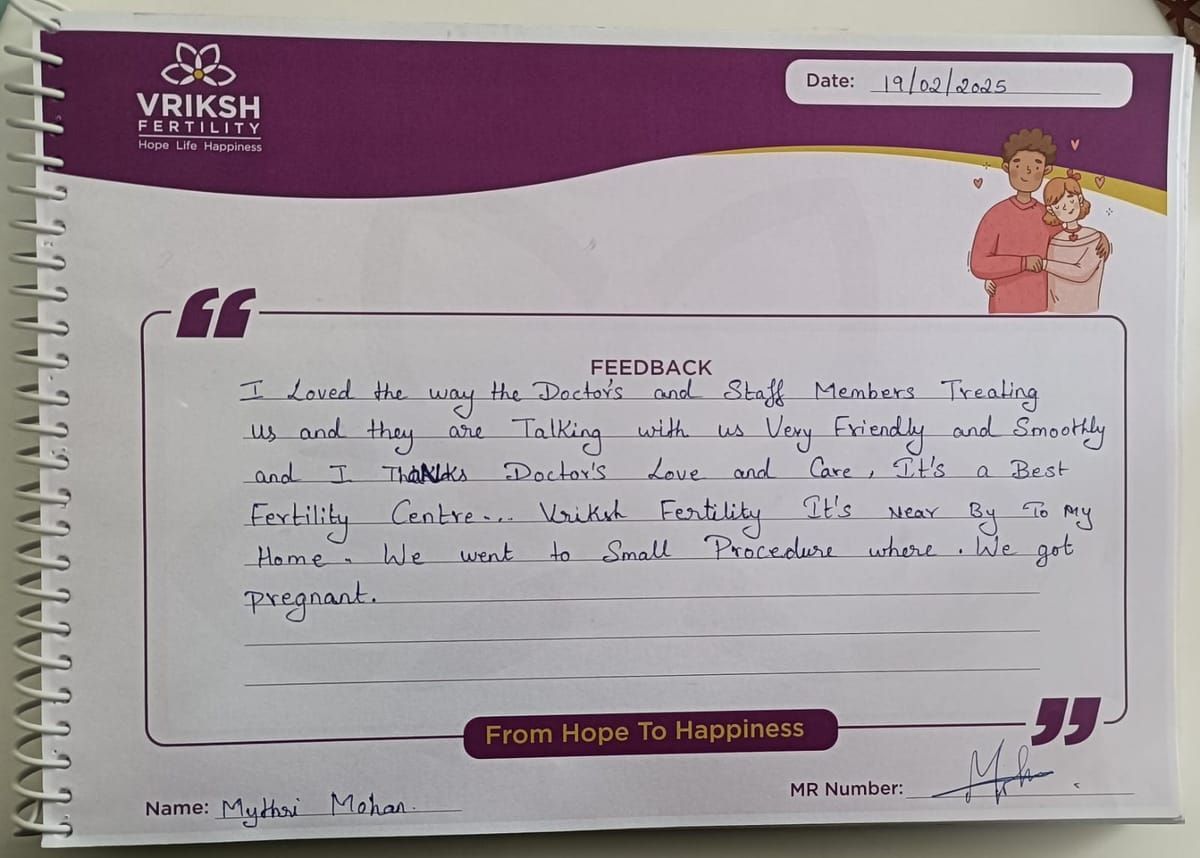 VRIKSH
FERTILITY
Hope Life Happiness
Date: 19/02/2025
FEEDBACK
I Loved the way the Doctor's and Staff Members Treating
us and they are Talking with us Very Friendly and Smoothly
and I Thanks Doctor's Love and Care, It's a Best
Fertility Centre... Vriksh Fertility It's Near By To My
Home. We went to Small Procedure where. We got
pregnant.
From Hope To Happiness
MR Number:
Name: Mythri Mohan.